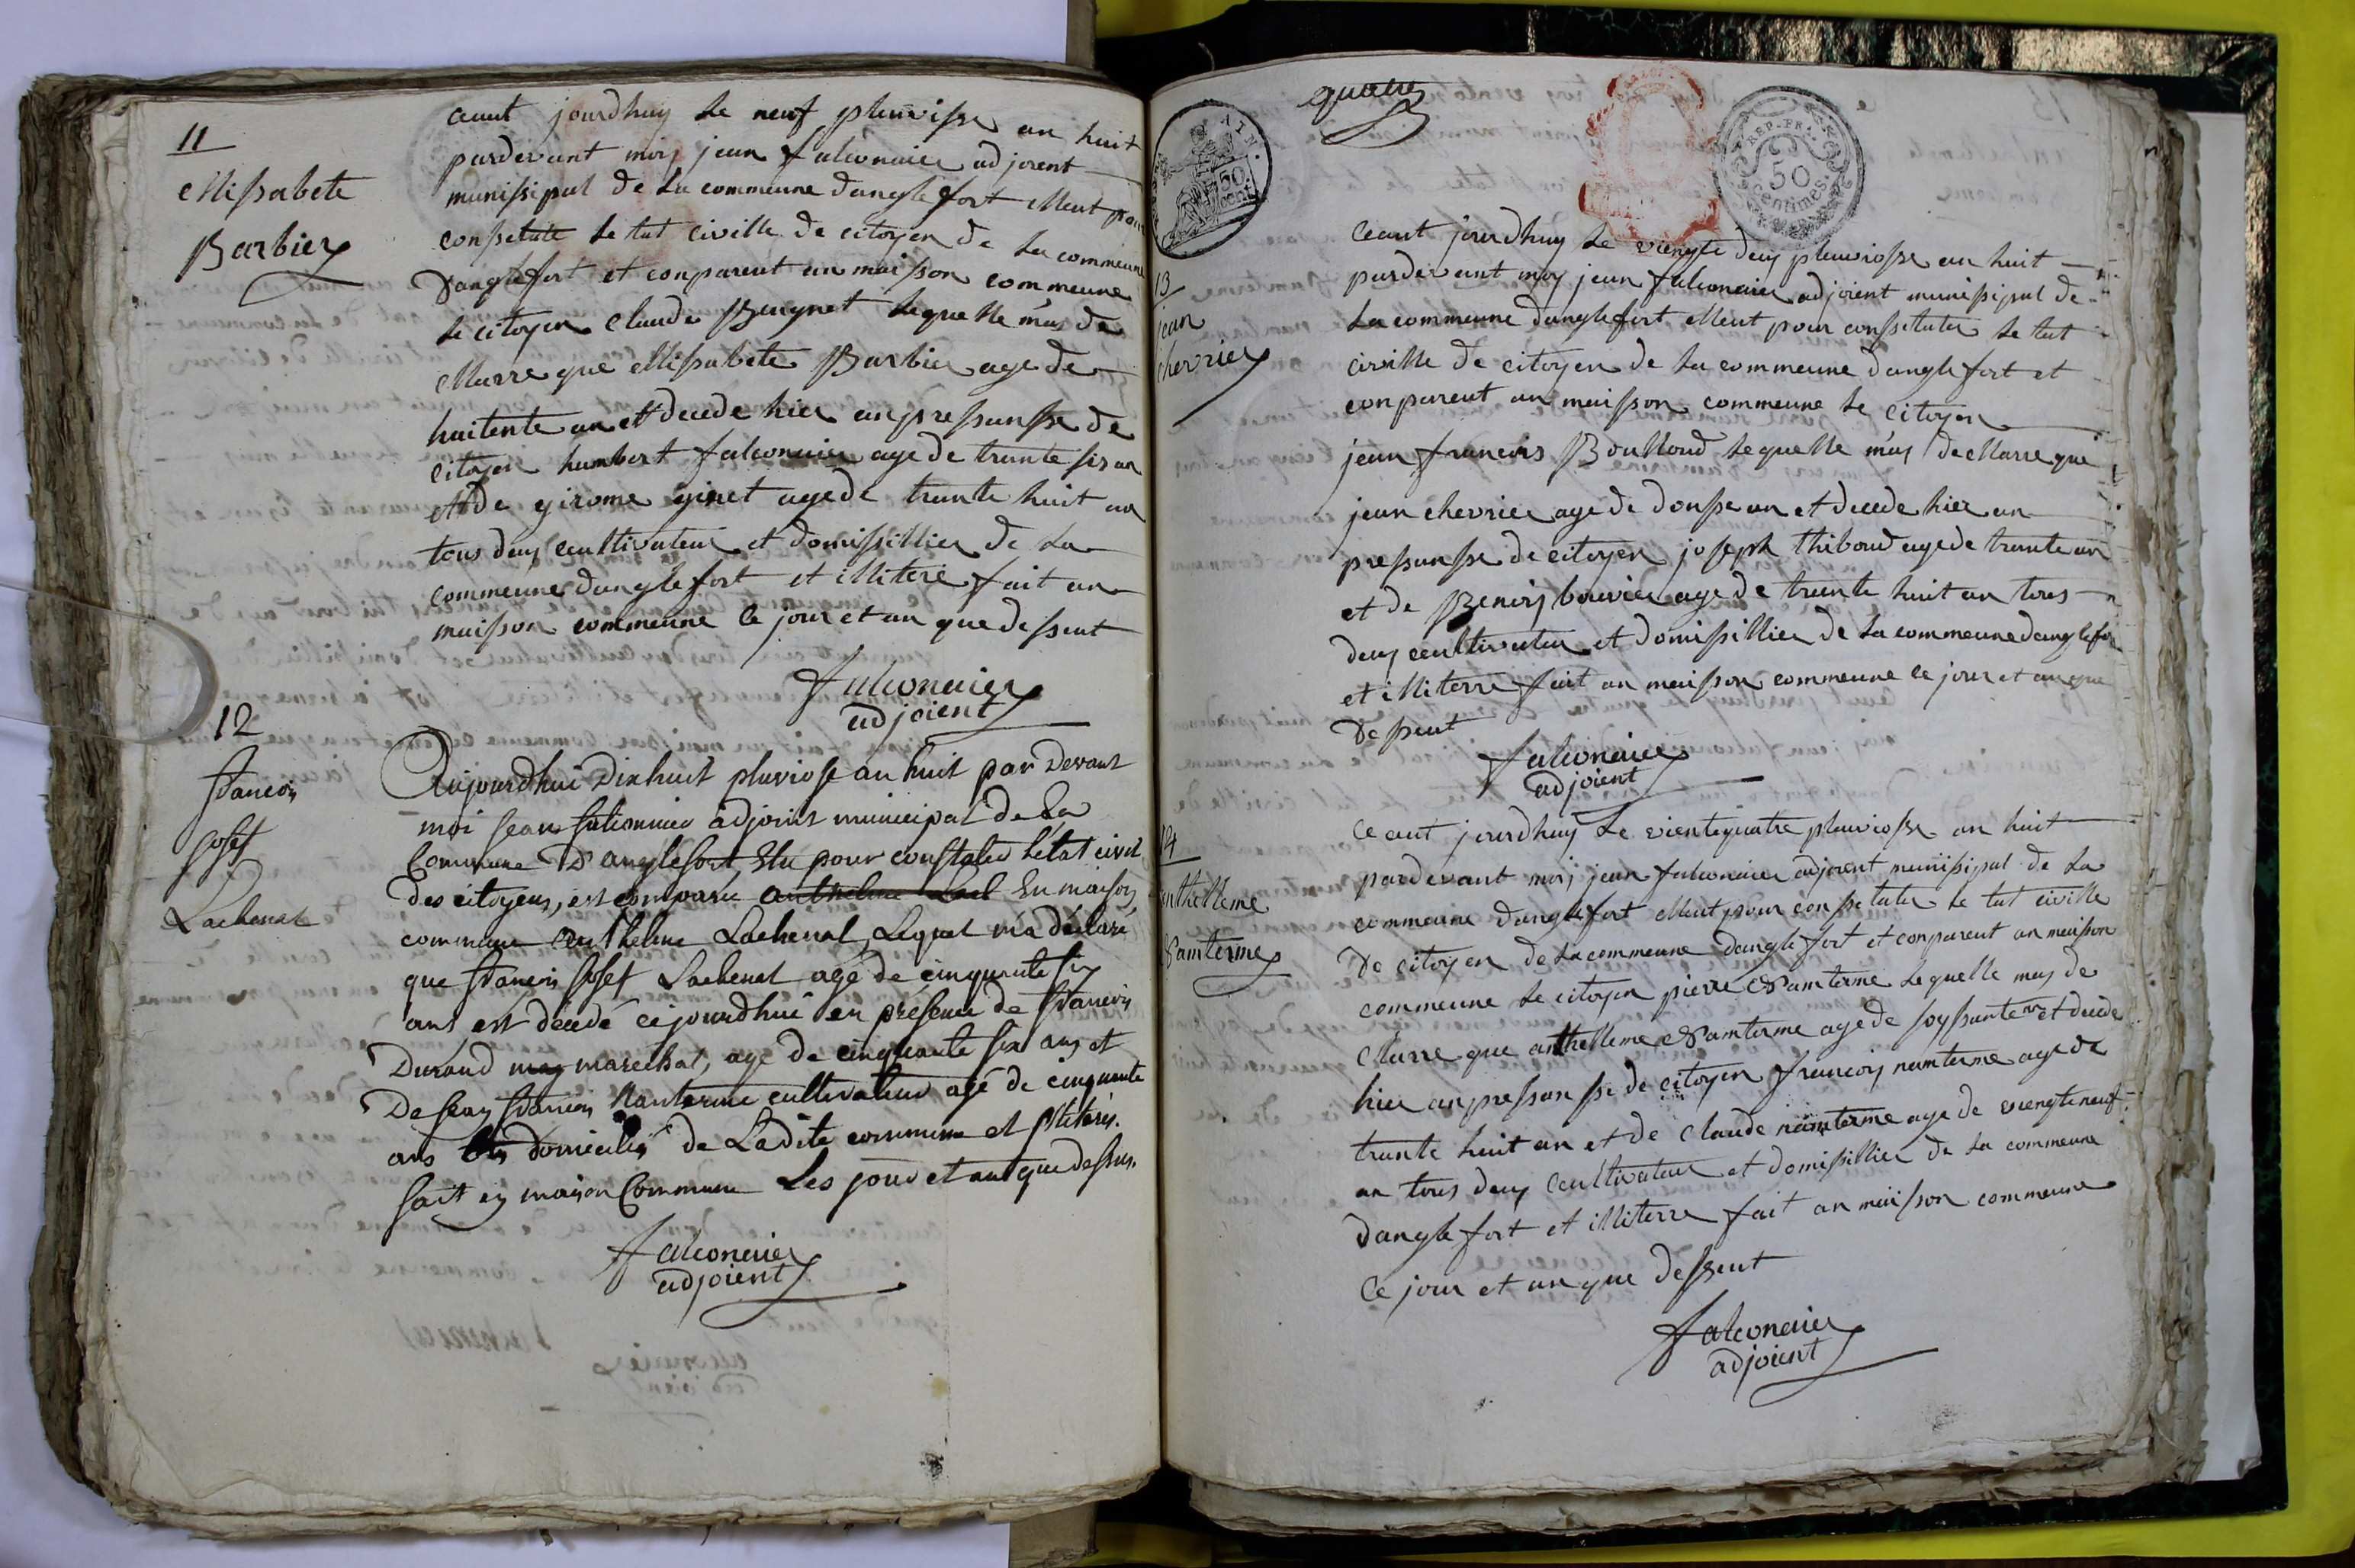 11
ellisabete
Barbier
ceaut jourdhuy le neuf pluviosse an huit
pardevant moy jean falconnier adjoient
munissipal de la commeune danglefort elleut pour
conssetate le tat civille de citoyen de la commeune
danglefort et conparent an maisson commeune
le citoyen claude Beugnet lequelle mas de
cllarre que ellisabete Barbier age de
huitente an et decede hier an pressansse de
citoyen humbert falconnier age de trante sis an
et de girome ginet age de trante huit an
tous deuy ceultivateur et domissillier de la
commeune danglefort et illiteré fait an
maisson commeune le jour et an que desseut
falconnier
adjoient
12
francois
josef
Lachenal
Aujourdhui Dixhuit pluviose an huit par Devant
moi jean falconnier adjoint municipal de La
Commune D'anglefort Elu pour constater l'état civil
des citoyens, est comparu anthelme Lach En maison
commune anthelme Lachenal, Lequel m'a déclaré
que francois josef Lachenal agé de cinquante six
ans est décedé cejourdhui en présence de francois
Durand may marechal, agé de cinquante six ans et
De jean francois Nanterme cultivateur agé de cinquante
ans tous domiciliés de Ladite commune et illiterés.
fait en maison Commune Les jour et an que dessus.
falconnier
adjoient
quatre
AIN.
50.
cent.
REP. FR.
50
centimes.
13
jean
chevrier
Ceaut jourdhuy le viengte deuy pleuviosse an huit
pardevant moy jean falconnier adjoient munissipal de
la commeune danglefort elleut pour conssetater le tat
civille de citoyen de la commeune danglefort et
conparent an maisson commeune le citoyen
jean francois Boulloud lequelle m'as decllarre que
jean chevrier age de dousse an et decede hier an
pressansse de citoyen joseph thiboud age de trante an
et de Benois bouvier age de trante huit an tous
deuy ceultivateur et domissillier de la commeune danglefor
et illiterre fait an maisson commeune le jour et an que
Desseut
falconnier
adjoient
14
anthelleme
Namterme
Ce aut jourdhuy Le vientequatre pleuviosse an huit
pardevant moy jean falconnier adjoient munissipal de la
commeune danglefort elleut pour conssetater le tat civille
De citoyen de la commeune danglefort et conparent an maisson
commeune le citoyen pierre Namterme lequelle mas de
cllarre que anthelleme Namterme age de soyssante et decede
hier an pressansse de citoyen francois namterme age de
trante huit an et de claude namterme age de viengteneuf
an tous deuy ceultivateur et domissillier de la commeune
danglefort et illiterre fait an maisson commeune
Ce jour et an que desseut
falconnier
adjoient